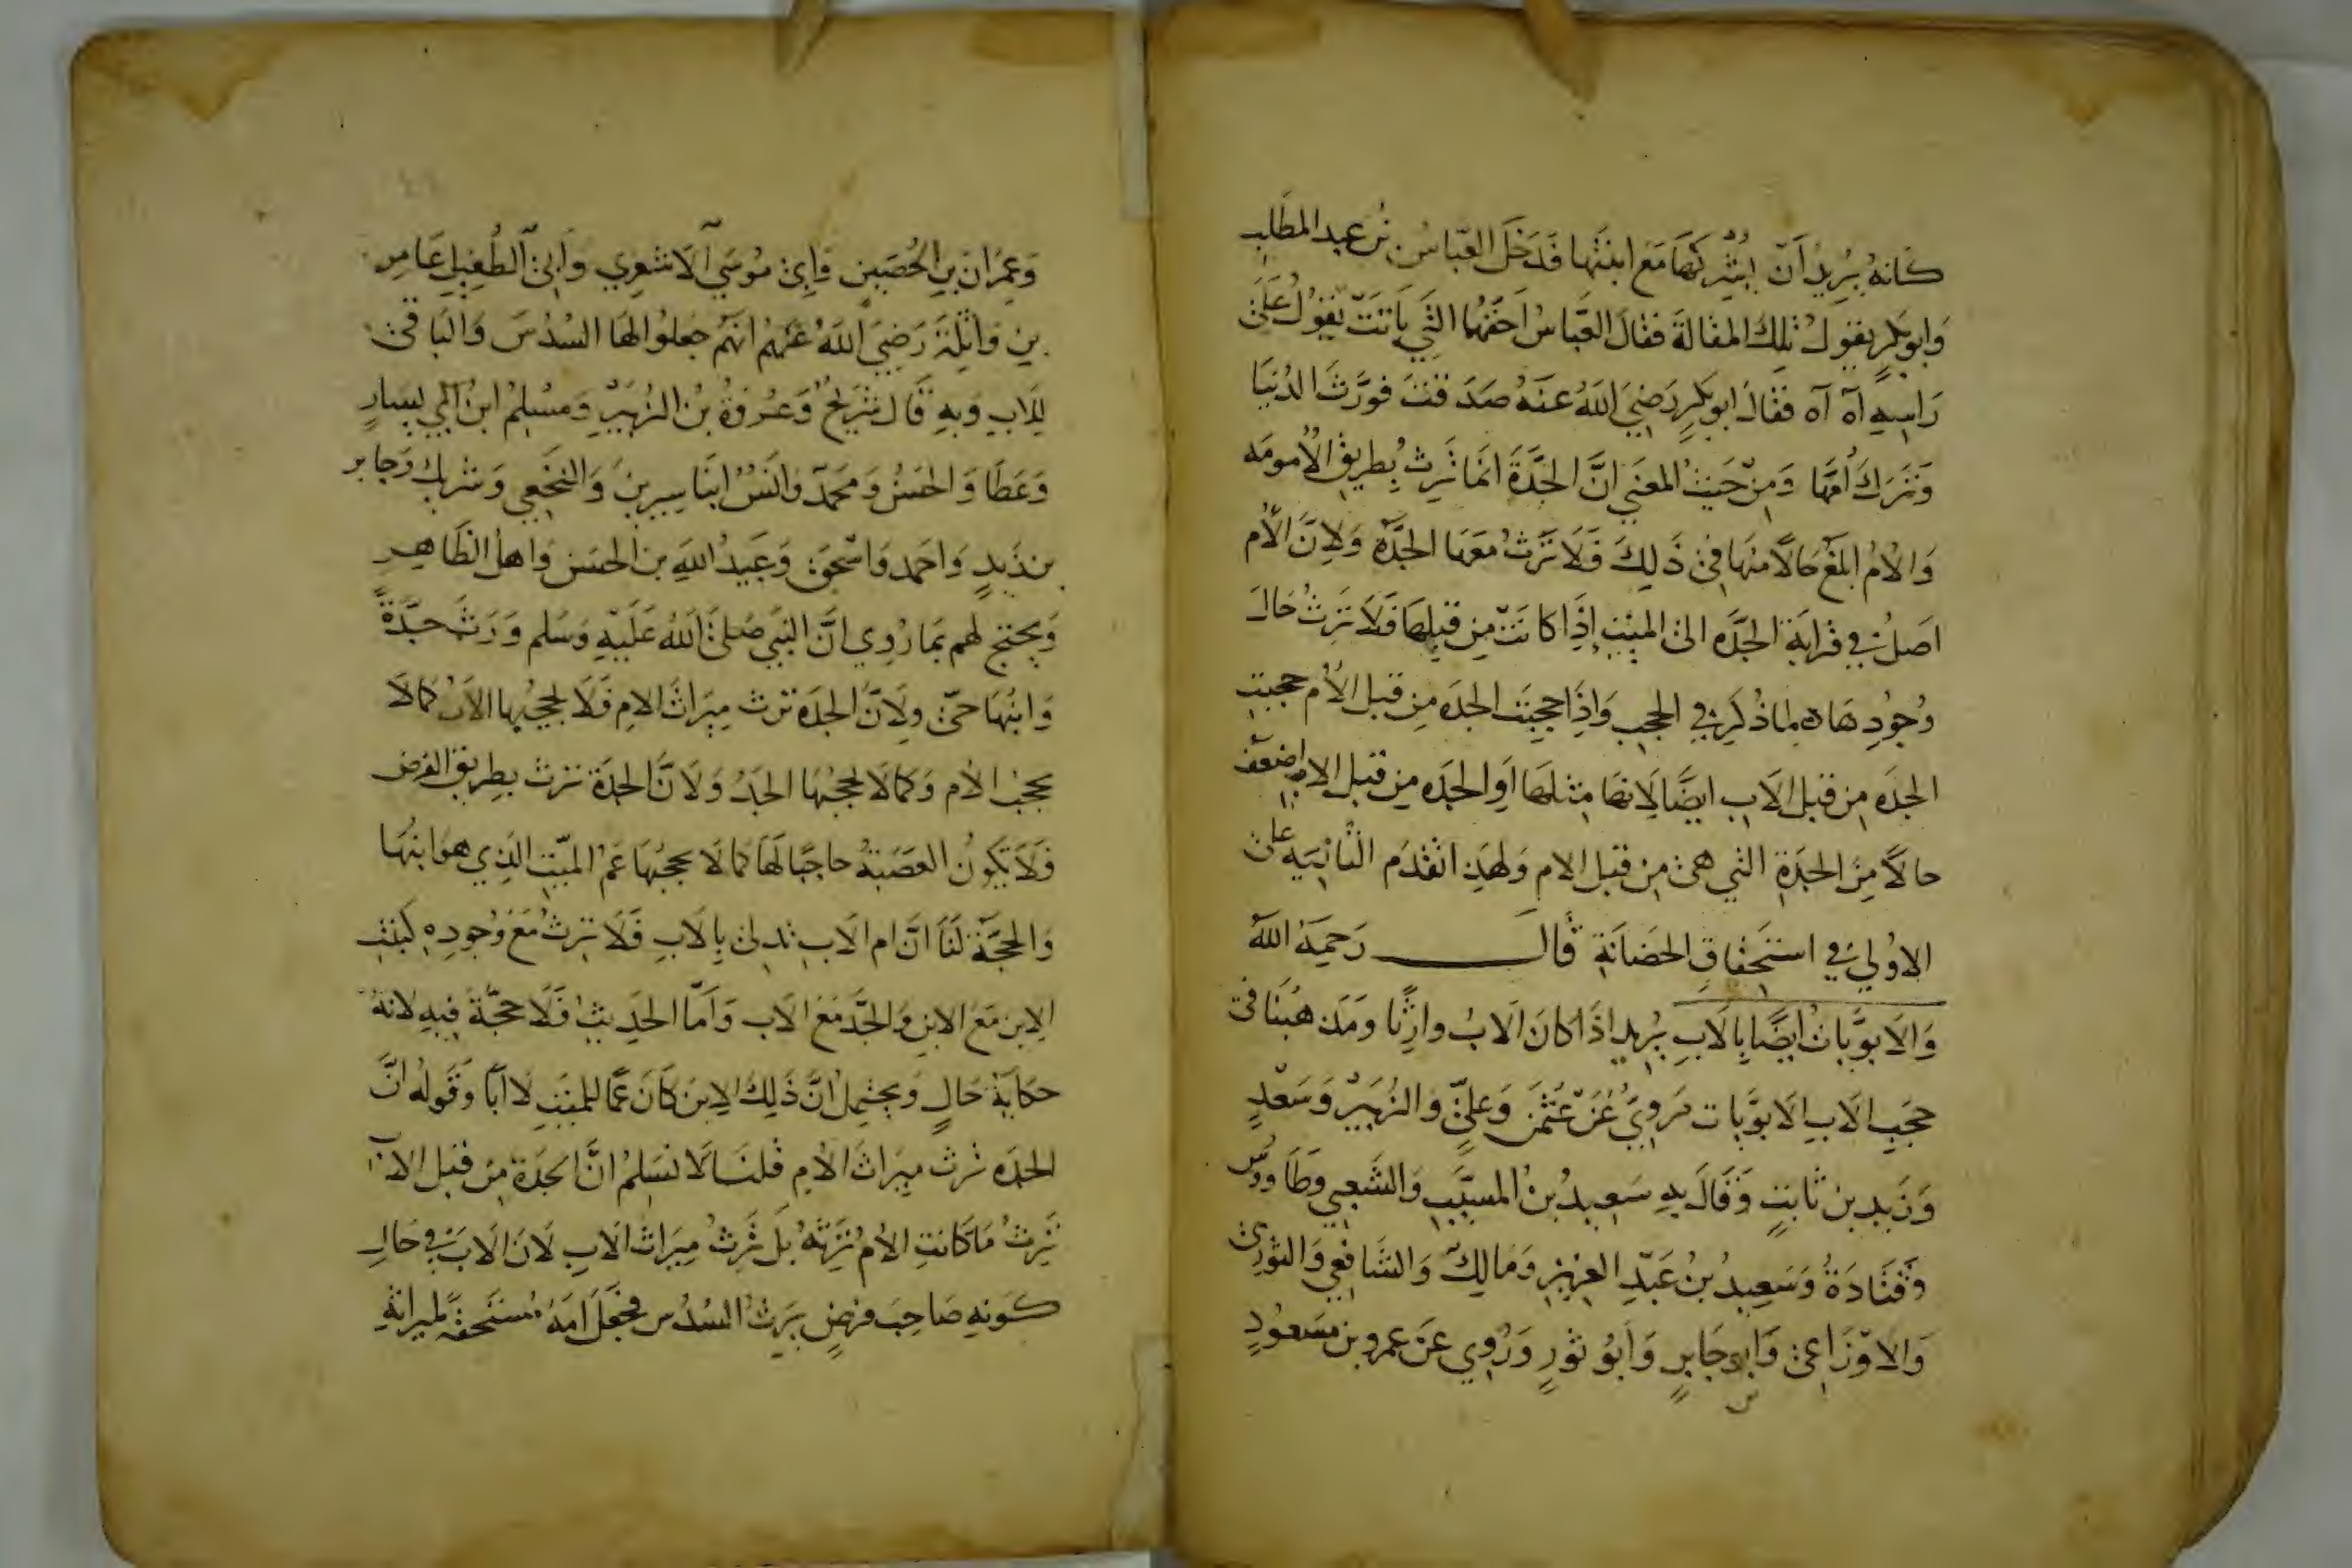 كانه يريد أن يشركها مع ابنتها فدخل العباس بن عبد المطلب
وابو بكر يقول تلك المقالة فقال العباس احقهما التي باتت تقول على
راسيه آه آه فقال ابو بكر رضي الله عنه صدقت فورث الدنيا
وترك أمها ومن حيث المعني ان الجدة انما ترث بطريق الأمومه
والأم ابلغ حالا منها في ذلك فلا ترث معها الجدة ولان الأم
اصل في قرابة الجده الى الميت إذا كانت من قبلها فلا ترث حال
وجودها لما ذكر في الحجب واذا حجبت الجده من قبل الأم حجبت
الجده من قبل الاب ايضا لانها مثلها او الجده من قبل الاب اضعف
حالا من الجدة التي هي من قبل الام ولهذا تقدم الثانيه على
الاولي في استحقاق الحضانة قال رحمة الله
والابويات ايضا بالاب يريد اذا كان الاب وارثا ومذهبنا في
حجب الاب الابويات مروي عن عثمن وعلي والزبير وسعد
وزيد بن ثابت وقال به سعيد بن المسيب والشعبي وطاووس
وقتادة وسعيد بن عبد العزيز ومالك والشافعي والثوري
والاوزاعي وابو جابر وابو ثور وروي عن عمرو بن مسعود
وعمران بن الحصين وابي موسي الاشعري وابي الطفيل عامر
بن واثلة رضي الله عنهم انهم جعلوا لها السدس والباقي
للاب وبه قال شريح وعروة بن الزبير ومسلم ابن ابي يسار
وعطا والحسن ومحمد وانس ابنا سيرين والنخعي وشريك وجابر
بن زيد واحمد واسحق وعبيد الله بن الحسن واهل الظاهر
ويحتج لهم بما روي ان النبي صلى الله عليه وسلم ورث جدة
وابنها حي ولان الجدة ترث ميراث الام فلا يحجبها الاب كما لا
يحجب الأم وكما لا يحجبها الجد ولان الجدة ترث بطريق الفرض
فلا تكون العصبة حاجبا لها كما لا يحجبها عم الميت الذي هو ابنها
والحجة لنا ان ام الاب تدلى بالاب فلا ترث مع وجوده كبنت
الابن مع الابن والجد مع الاب واما الحديث فلا حجة فيه لانه
حكاية حال ويحتمل ان ذلك الابن كان عما للميت لا ابا وقوله ان
الجده ترث ميراث الأم قلنا لا نسلم ان الجدة من قبل الاب
ترث ما كانت الأم ترثه بل ترث ميراث الاب لان الاب في حال
كونه صاحب فرض يرث السدس فجعل امه مستحقة لميراثه